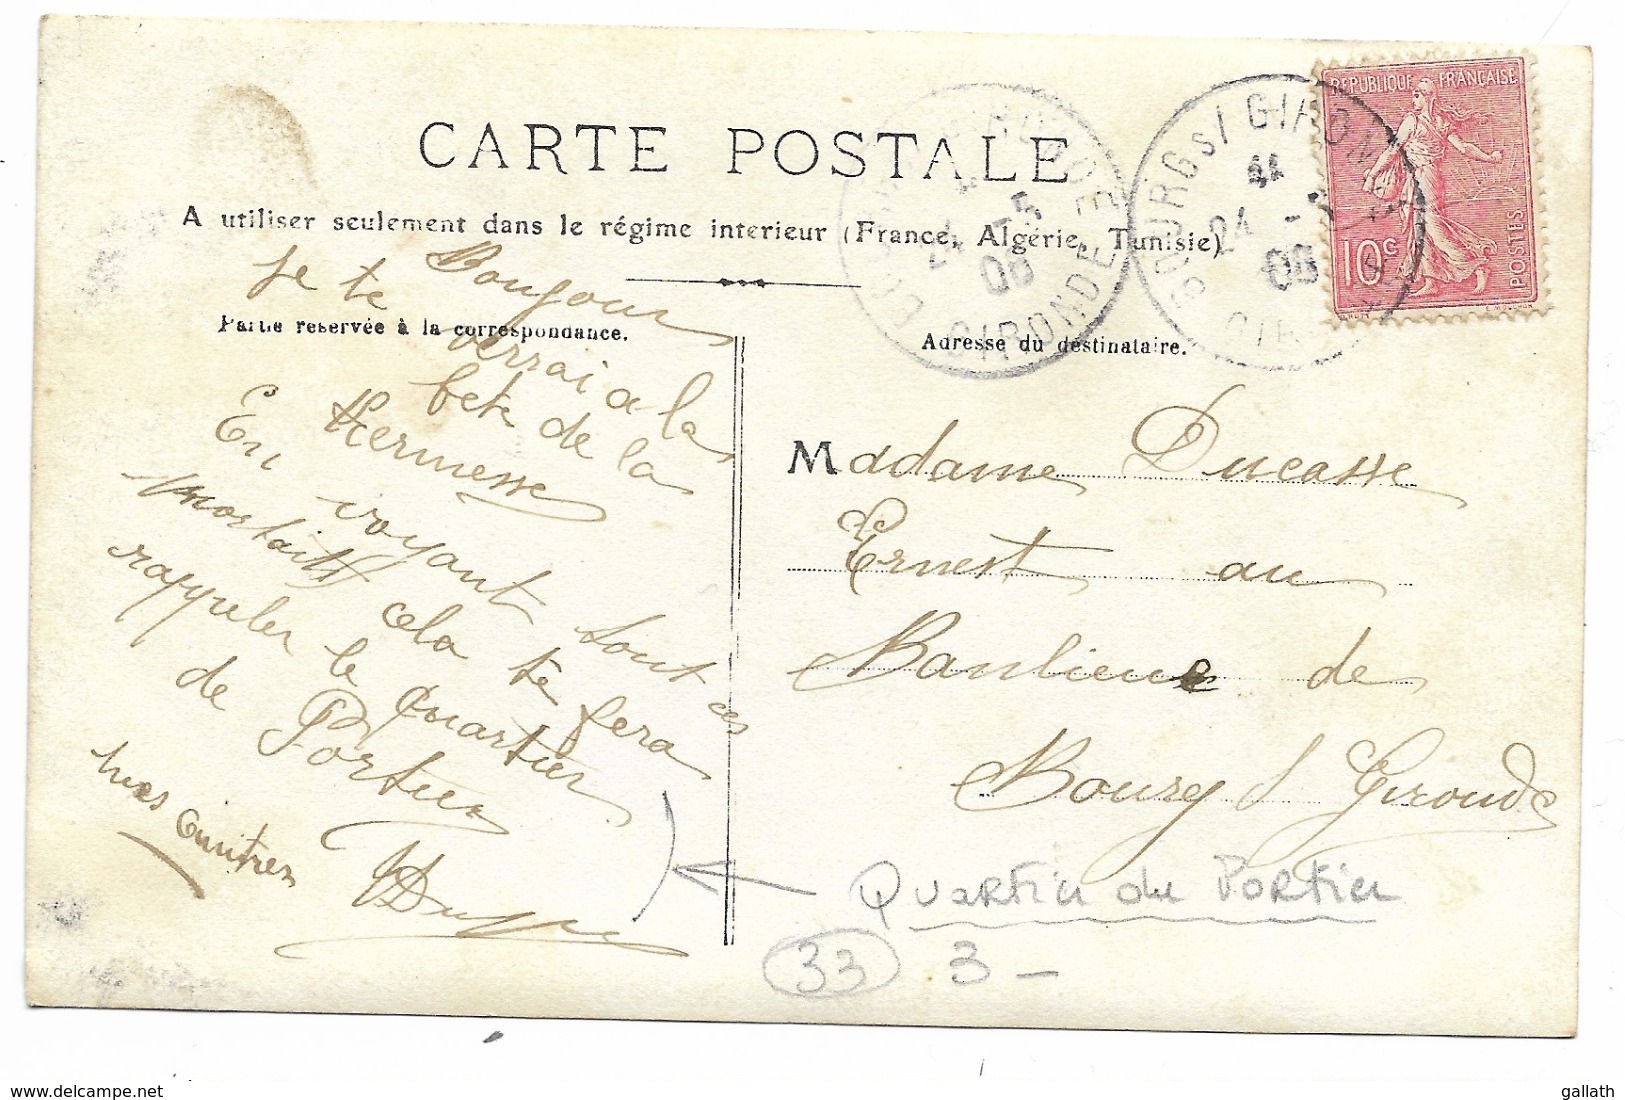 CARTE POSTALE
A utiliser seulement dans le régime interieur (France, Algérie, Tunisie)
Partie reservée à la correspondance.
Adresse du destinataire.
REPUBLIQUE FRANÇAISE
10c
POSTES
BOURG s/ GIRONDE
24 -5
06
GIRONDE
24 -5
06
GIRONDE
Bonjour
Je te verrai a la
fete de la
Kermesse
En voyant tout ces
portraits cela te fera
rappeler le Quartier
de Portier
Madame Ducasse
Ernest au
Banlieue de
Bourg s Gironde
Quartier du Portier
33 3 -
www.delcampe.net
gallath